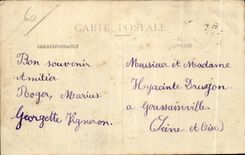 60
CARTE POSTALE
CORRESPONDANCE
Bon souvenir
Amitier
Roger, Marius
Georgette Vigneron
Monsieur et Madame
Hyacinte
a Goussainville
(Seine et Oise)